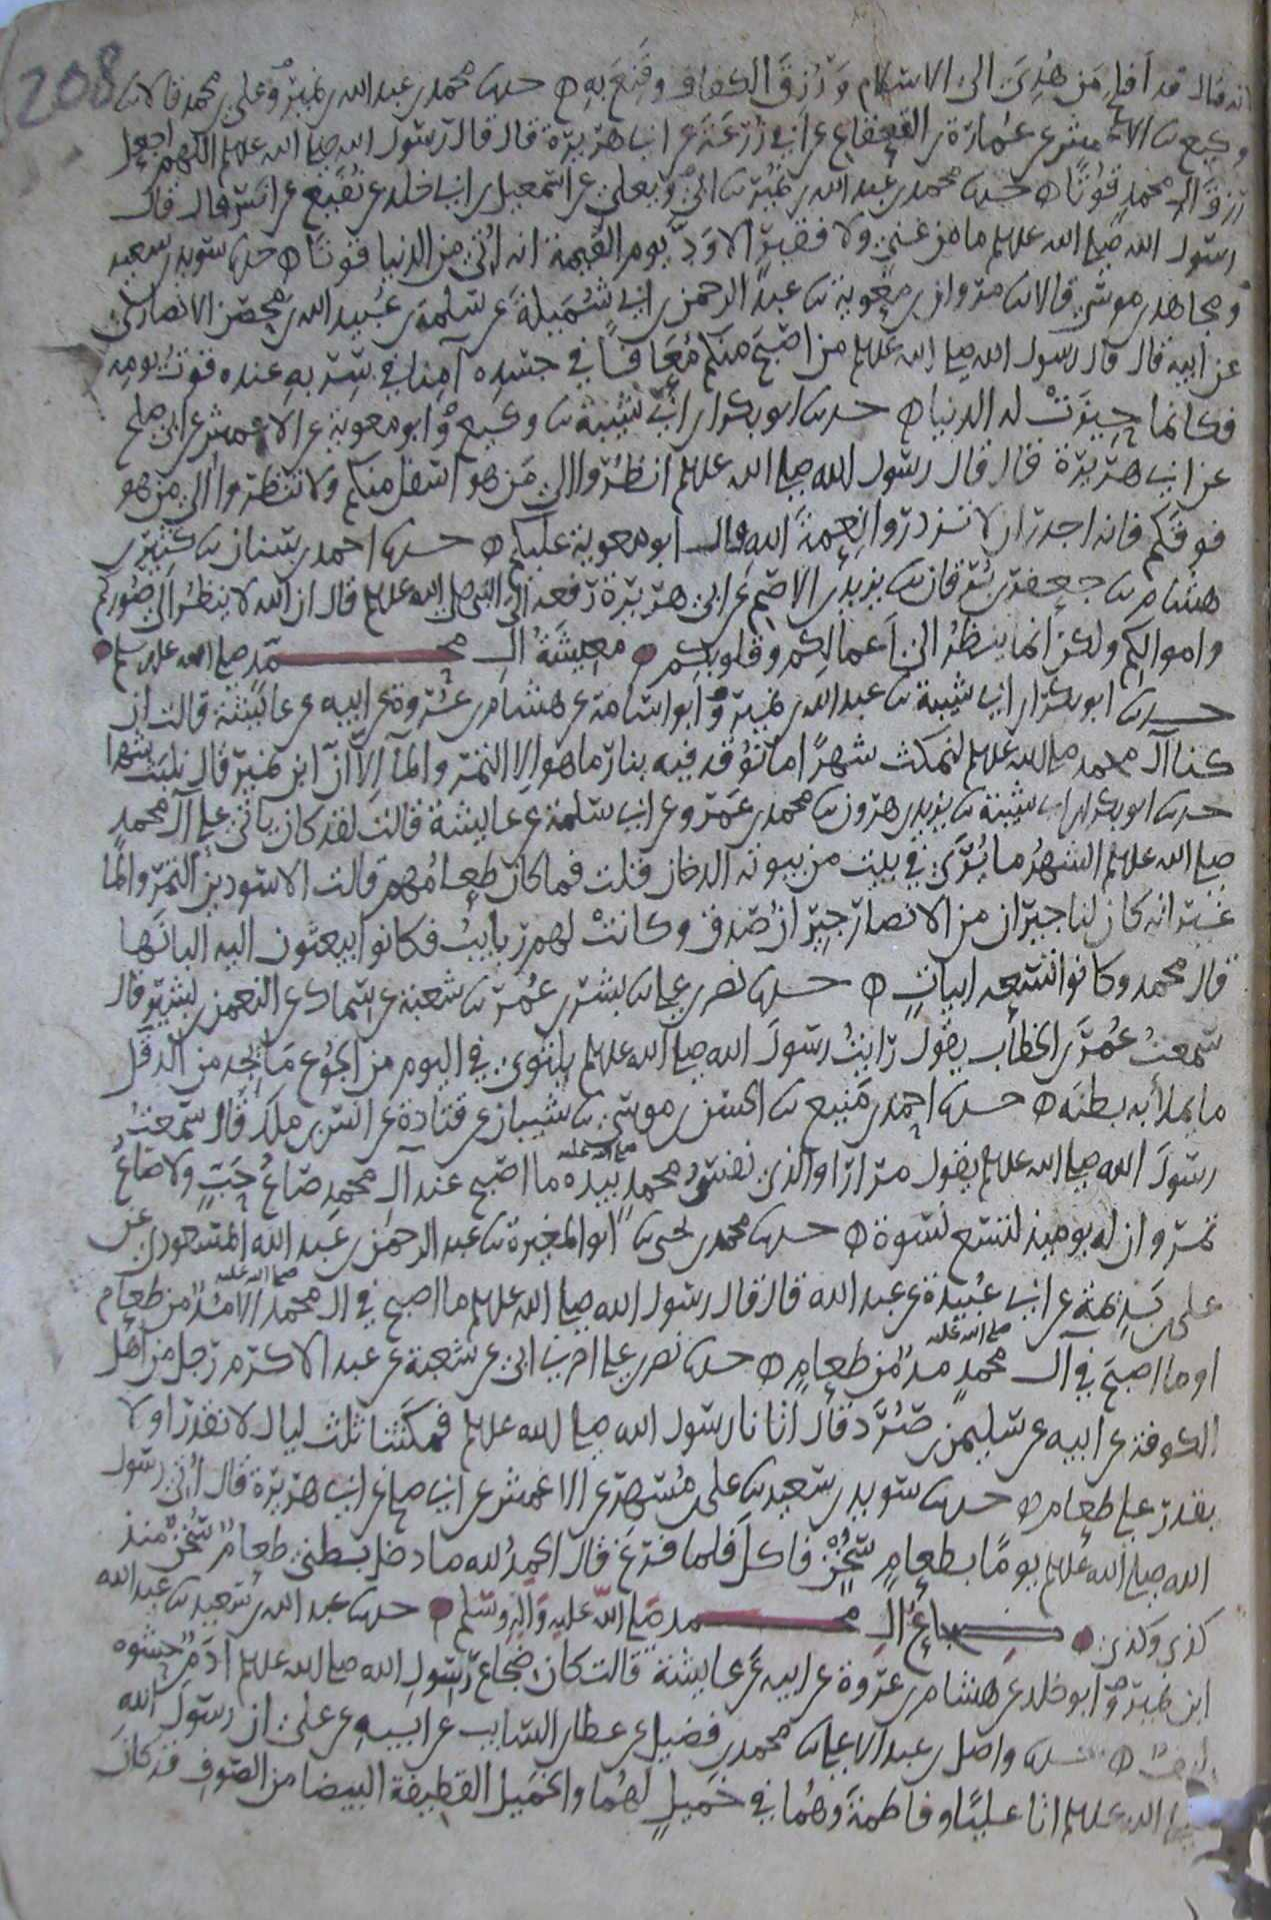 208
انه قال قد افلح مَن هُدِيَ الى الاسلام وَرُزقَ الكفاف وقَنِعَ بِهِ ه حدثنا محمد بن عبد الله بن نمير وعلي بن محمد قالا ثنا
وكيع ثنا الاعمش عن عمارة بن القعقاع عن ابي زرعة عن ابي هريرة قال قال رسول الله صلى الله عليه وسلم اللهم اجعل
رزق ال محمد قوتًا ه حدثنا محمد بن عبد الله بن نمير ثنا ابي ويعلى عن اسمعيل بن ابي خلد عن نفيع عن انس قال قال
رسول الله صلى الله عليه وسلم ما من غني ولا فقير الا وَدَّ يوم القيمة انه اُتي من الدنيا قوتًا ه حدثنا سويد بن سعيد
ومجاهد بن موسى قالا ثنا مروان بن معوية ثنا عبد الرحمن بن ابي شُمَيلة عن سلمة بن عبيد الله بن محصن الانصاري
عن ابيه قال قال رسول الله صلى الله عليه وسلم من اصبح منكم مُعَافًا في جسده آمنا في سربه عنده قوت يومه
فكانما حِيزَتْ له الدنيا ه حدثنا ابو بكر بن ابي شيبة ثنا وكيع وابو معوية عن الاعمش عن ابي صلح
عن ابي هريرة قال قال رسول الله صلى الله عليه وسلم انظُروا الى مَن هو اسفل منكم ولا تنظروا الى من هو
فوقكم فانه اجدر ان لا تزدروا نعمةَ الله قال ابو معوية عليكم ه حدثنا احمد بن سنان ثنا كثير بن
هشام ثنا جعفر بن بُرقان ثنا يزيد بن الاصم عن ابي هريرة رفعه الى النبي صلى الله عليه وسلم قال ان الله لا ينظُر الى صُوركم
واموالكم ولكن انما ينظُر الى اَعمالكم وقلوبكم معيشَةُ ال محمد صلى الله عليه وسلم
حدثنا ابو بكر بن ابي شيبة ثنا عبد الله بن نمير وابو اسامة عن هشام بن عُروة عن ابيه عن عائشة قالت ان
كنا آل محمد صلى الله عليه وسلم لنمكث شهرًا ما نوقد فيه بنار ما هو الا التمر والمآ اِلّا اَنَّ ابن نمير قال نلبث شهرا
حدثنا ابو بكر بن ابي شيبة ثنا يزيد بن هرون ثنا محمد بن عمرو عن ابي سلمة عن عايشة قالت لقد كان ياتي على آل محمد
صلى الله عليه وسلم الشهرُ ما يُرَى في بيت من بيوته الدخان قلت فما كان طعامُهم قالت الاسودين التمر والما
غير انه كان لنا جيران من الانصار جيرانُ صدق وكانتْ لهم ربايبُ فكانوا يبعثون اليه البانَها
قال محمد وكانوا تسعه ابياتٍ ه حدثنا نصر بن علي ثنا بشر بن عُمر ثنا شعبة عن سماك عن النعمن بن بشير قال
سمعت عُمرَ بن الخطاب يقول رايتُ رسولَ الله صلى الله عليه وسلم يلتوي في اليوم من الجُوع مَا يجد من الدقل
ما يملأ به بطنَه ه حدثنا احمد بن مَنيع ثنا الحسن بن موسى ثنا شيبان عن قتادة عن انس بن ملك قال سمعتُ
رسولَ الله صلى الله عليه وسلم يقول مرارا والذي نفس محمد بيده ما اصبح عند آل محمدٍ صلى الله عليه صَاعُ حَبٍّ ولا صَاعُ
تمر وان له يوميذ لتسع نسوة ه حدثنا محمد بن يحيى ثنا ابو المغيرة ثنا عبد الرحمن بن عبد الله المسعودي عن
علي بن بَذيمة عن ابي عُبيدة عن عبد الله قال قال رسول الله صلى الله عليه وسلم ما اصبح في ال محمد صلى الله عليه الا مُدٌّ من طعام
او ما اصبحَ في آل محمد صلى الله عليه مدٌّ من طعام ه حدثنا نصر بن علي اخبرني ابي عن شعبة عن عبد الاكرم رجل من اهل
الكوفة عن ابيه عن سليمن بن صُرَد قال اتانا رسول الله صلى الله عليه وسلم فمكَثنا ثلث ليال لا نقدر او لا
يقدر على طعام ه حدثنا سويد بن سعيد ثنا علي بن مُسْهِر عن الاعمش عن ابي صالح عن ابي هريرة قال اُتي رسول
الله صلى الله عليه وسلم يومًا بطعام سُخْنٍ فاكل فلما فرغ قال الحمدُ لله ما دخل بطني طعامٌ سُخنٌ منذ
كذى وكذى ضجاعُ الِ محمد صلى اللهُ عليه وآله وسلم حدثنا عبد الله بن سعيد ثنا عبد الله
ابن نمير وابو خلد عن هشام بن عروة عن ابيه عن عايشة قالت كان ضجاع رسولِ الله صلى الله عليه وسلم ادَمٌ حشوه
ليفٌ ه حدثنا واصل بن عبد الاعلى ثنا محمد بن فضيل عن عطا بن السايب عن ابيه عن علي ان رسولَ اللهِ
صلى الله عليه وسلم اتا عليًا وفاطمة وهُما في خَميلٍ لهُما والخميل القطيفة البيضا من الصوف قد كان